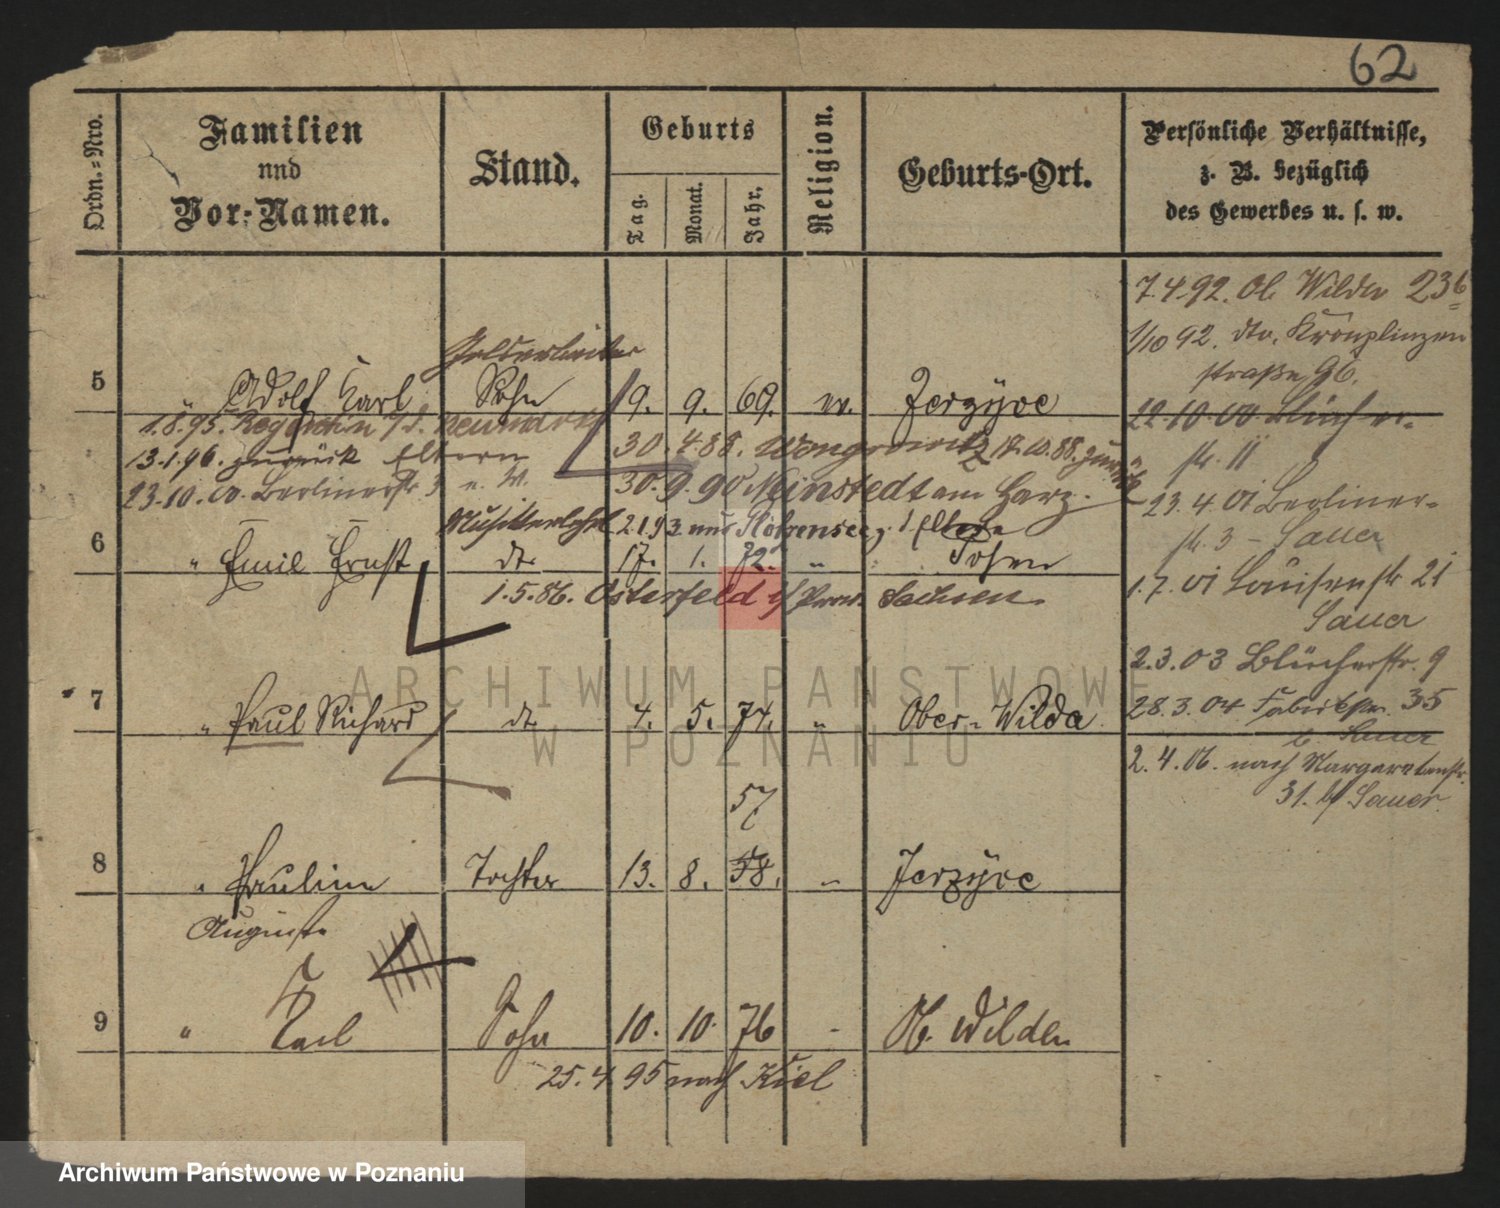 62
Ordn.-Nro.
Familien
und
Vor-Namen.
Stand.
Geburts
Tag.
Monat.
Jahr.
Religion.
Geburts-Ort.
Persönliche Verhältnisse,
z. B. bezüglich
des Gewerbes u. s. w.
7.4.92. Ob. Wilda 236
1/10 92. dto. Kronprinzen
straße 96.
5 " Adolf Karl Sohn 9. 9. 69. ev. Jerzyce
22.10.00 Blücher-
str. 11
1.8.95. Neumark
30.4.88. Wongrowitz 17.10.88. zurück
13.1.96. zurück Eltern
23.10.00. Berlinerstr. 3
30.9.90 Meinstedt am Harz.
23.4.01 Berliner-
str. 3 - Sauer
2.1.93 Eltern
6 " Emil Ernst dto 17. 1. 72. " Posen
1.5.86. Osterfeld Prov. Sachsen.
1.7.01 Louisenstr 21
Sauer
2.3.03 Blücherstr. 9
7 " Paul Richard dto 4. 5. 74. " Ober-Wilda
28.3.04 Fabrikstr. 35
b Sauer
2.4.06. nach Margaretenstr.
31. b/ Sauer
57
8 " Pauline Tochter 13. 8. 58. " Jerzyce
Auguste
9 " Karl Sohn 10. 10. 76 - Ob. Wilda
25.4.95 nach Kiel
ARCHIWUM PAŃSTWOWE
W POZNANIU
Archiwum Państwowe w Poznaniu